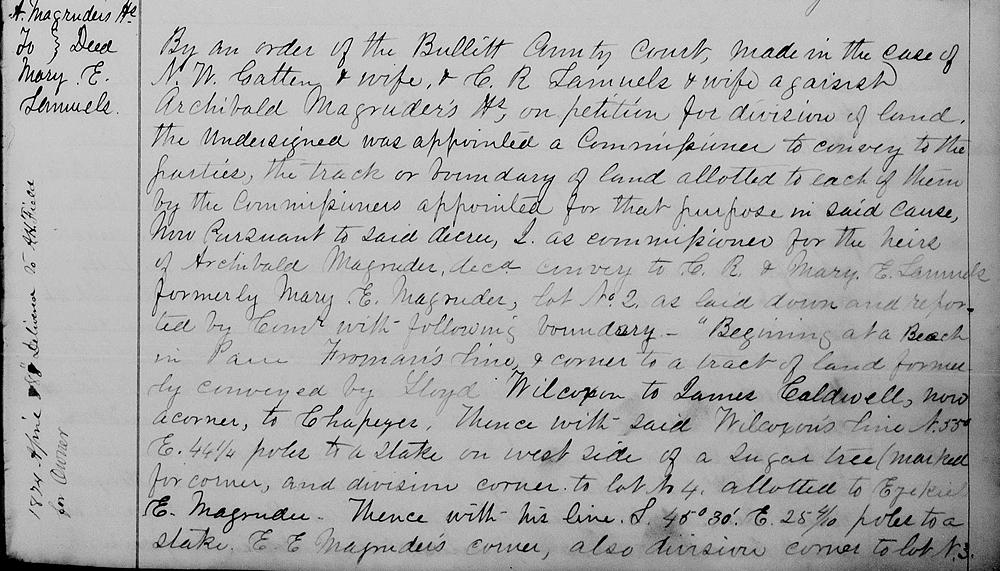 A. Magruder's Hs
To } Deed
Mary E.
Samuels.
By an order of the Bullitt County Court, made in the case of
N. W. Catten & wife, & C. R Samuels & wife against
Archibald Magruder's Hs, on petition for division of land.
the Undersigned was appointed a Commissioner to convey to the
parties, the track or boundary of land allotted to each of them
by the Commissioners appointed for that purpose in said cause,
Now Pursuant to said decree, I. as commissioner for the heirs
of Archibald Magruder, decd convey to C. R. & Mary. E. Samuels
formerly Mary E. Magruder, lot No 2. as laid down and repor-
ted by Comr with following boundary - "Begining at a Beach
in Paul Froman's line, & corner to a tract of land former
ly conveyed by Lloyd Wilcoxon to James Caldwell, now
a corner, to Chapeyer. Thence with said Wilcoxon's line N. 55°
E. 44 1/4 poles to a Stake on west side of a Sugar tree (marked
for corner, and division corner to lot No 4. allotted to Ezekiel
E. Magruder. Thence with his line. S. 45° 30'. E. 25 4/10 poles to a
stake. E. E Magruder's corner, also division corner to lot N. 3.
1874 April 18" Deliverd to
for Owner